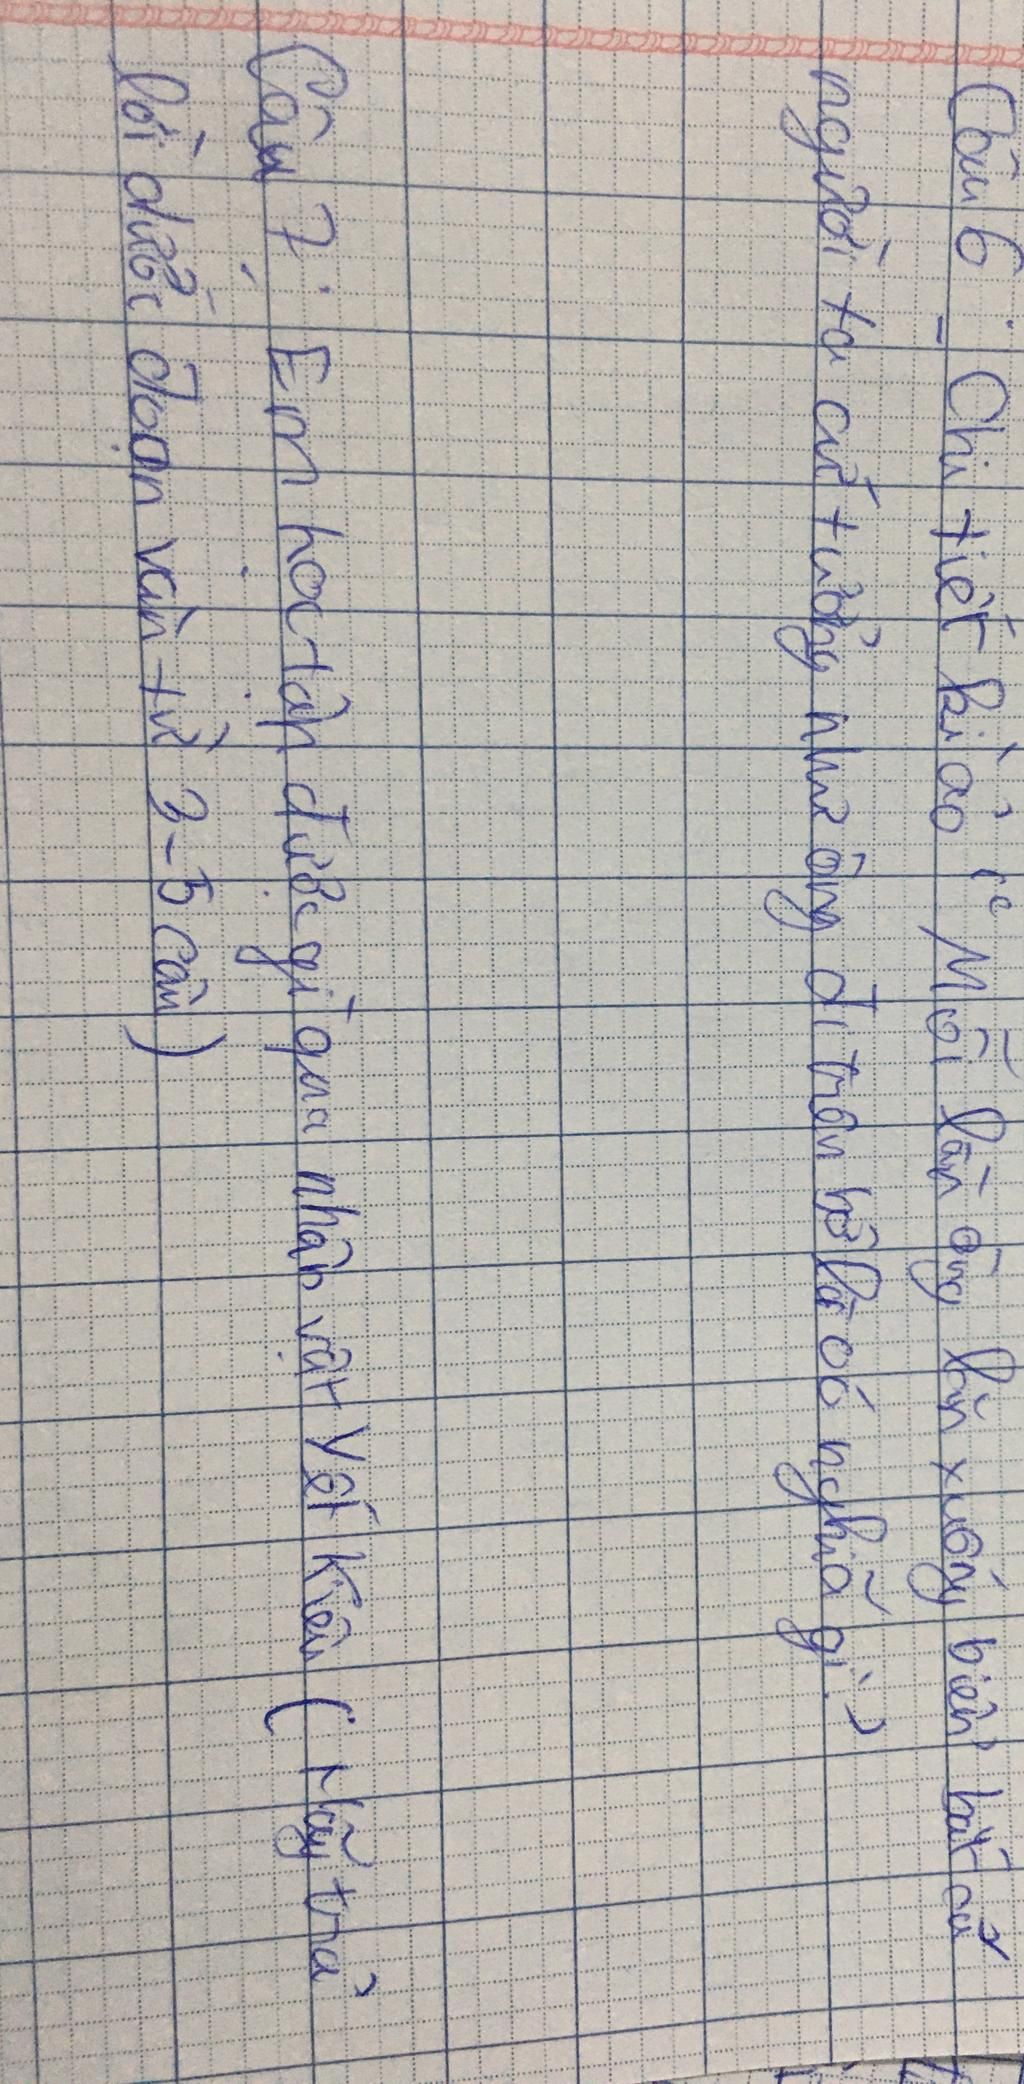 Câu 6: - Chi tiết kì ảo "Mỗi lần ông lặn xuống biển bắt cá
người ta cứ tưởng như ông đi trên bộ là có nghĩa gì?
Câu 7: Em học tập được gì qua nhân vật Yết Kiêu (Hãy trả
lời dưới đoạn văn từ 3-5 câu)